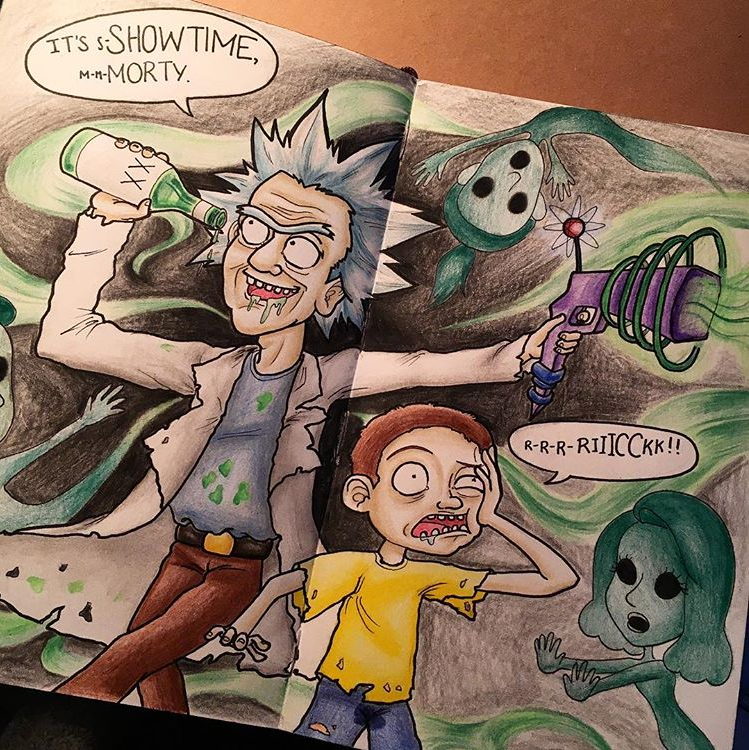 IT'S S-SHOWTIME,
M-M-MORTY.
XX
R-R-R-RIIICCKK!!